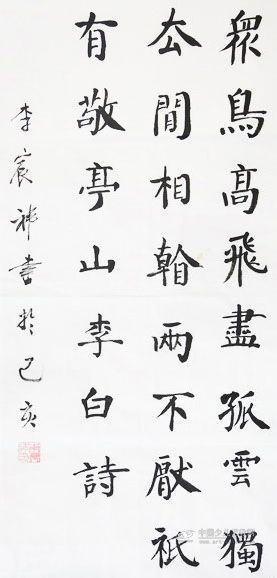 眾鳥高飛盡孤雲獨
厺閒相看兩不厭祇
有敬亭山李白詩
李宸書於己亥